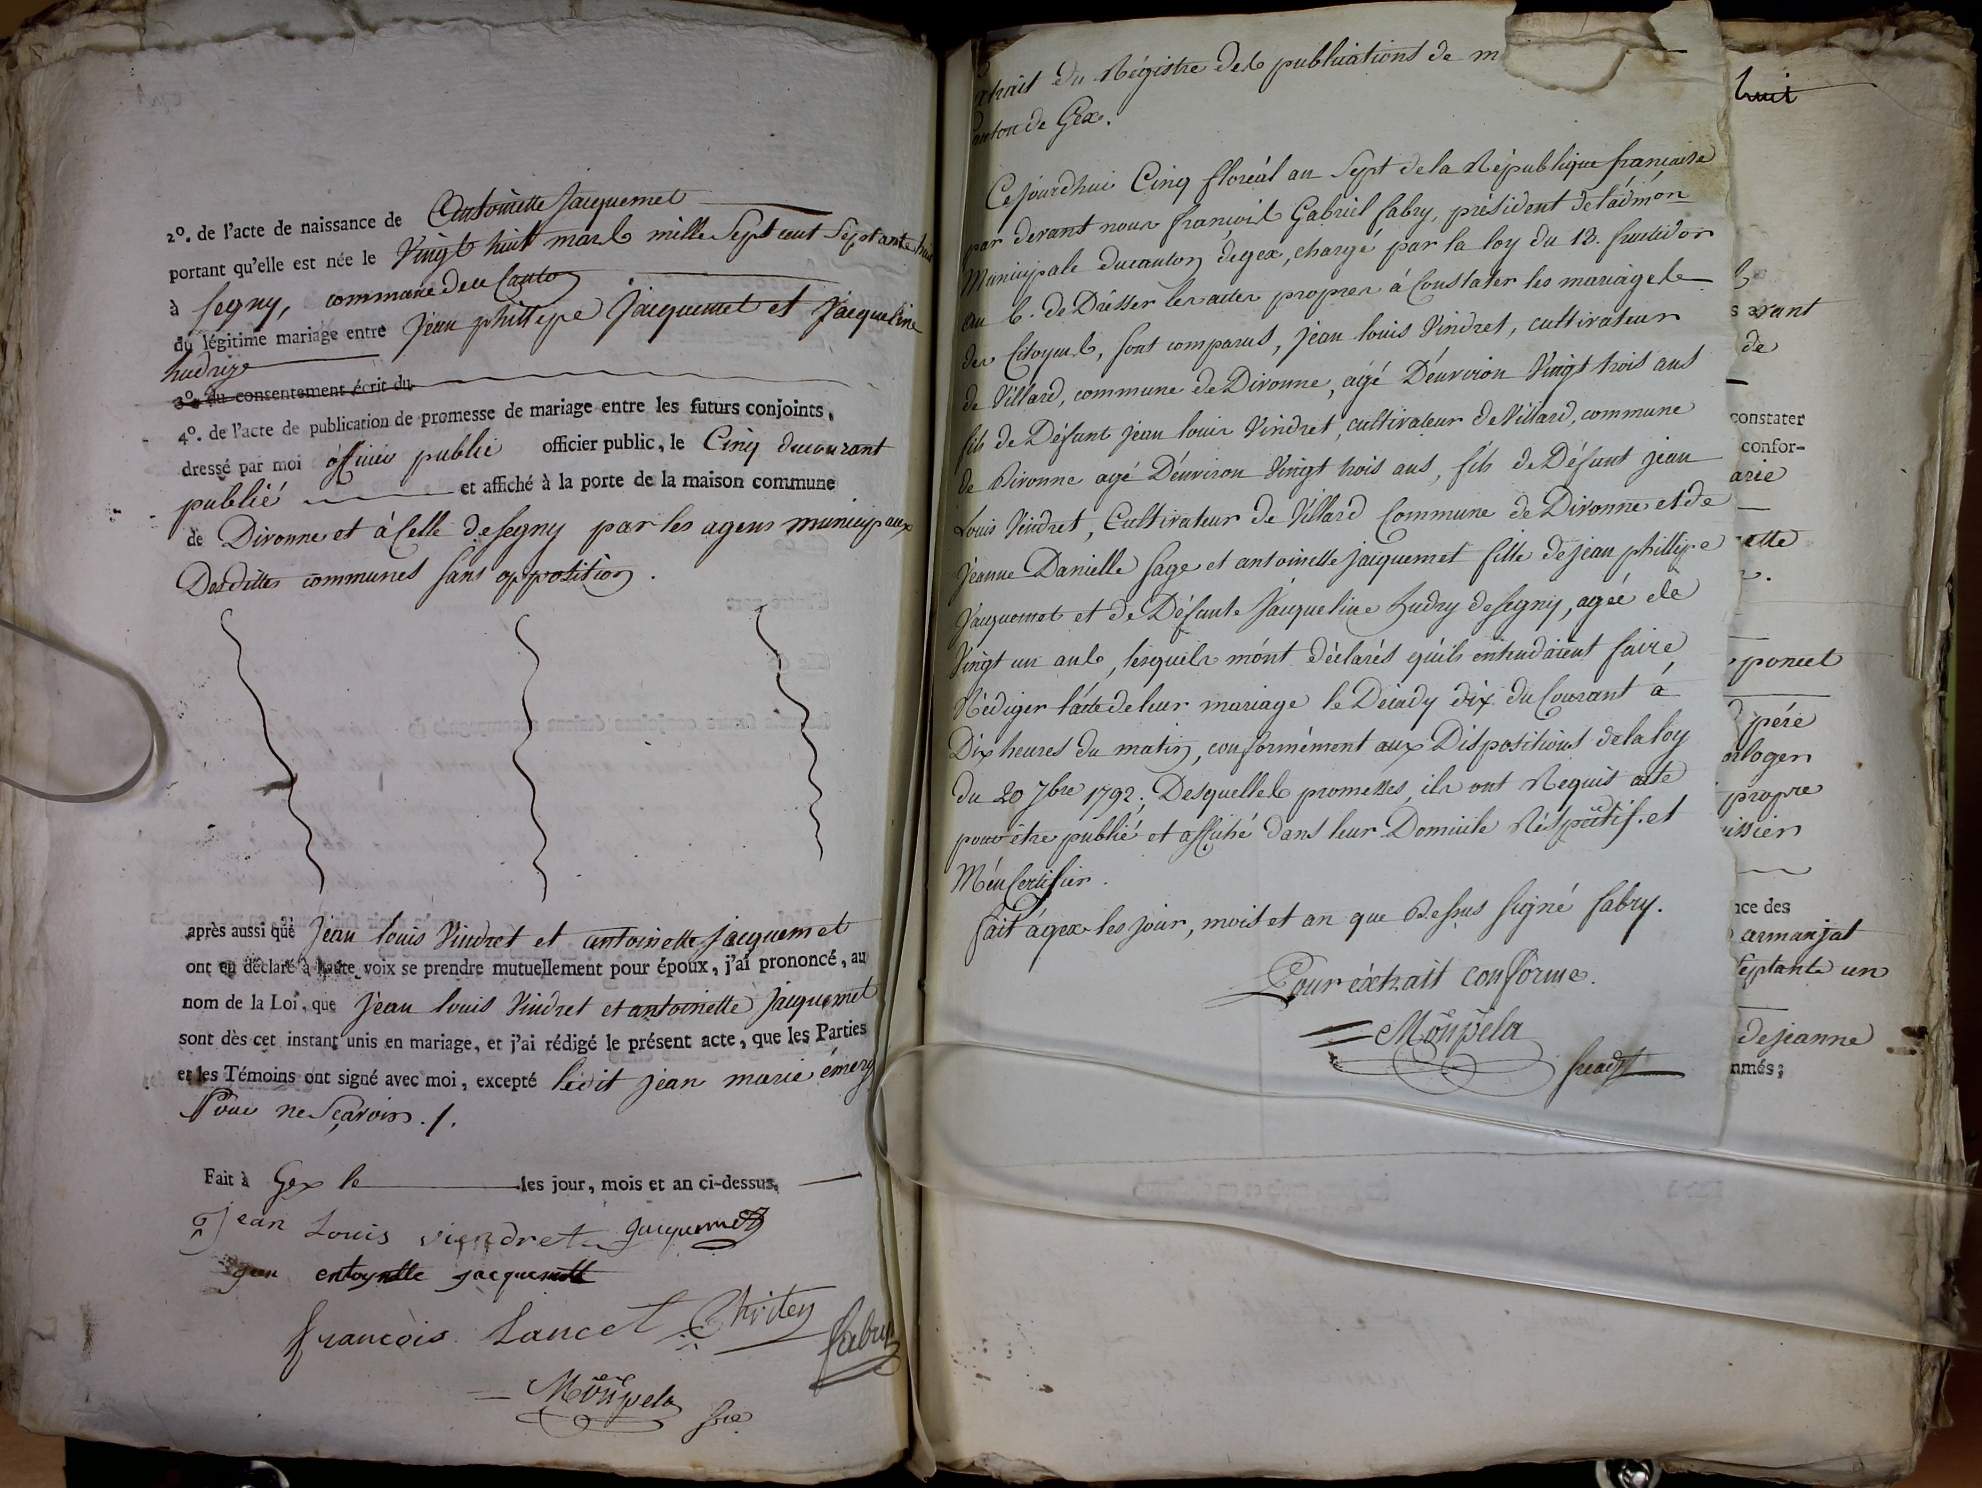 2º. de l'acte de naissance de Antoinette Jacquemet
portant qu'elle est née le Vingt huit mars mille Sept cent Septante huit
à Segny, commune de ce Canton
du légitime mariage entre Jean phillipe Jacquemet et Jacqueline
hudrize
3º. du consentement écrit du
4º. de l'acte de publication de promesse de mariage entre les futurs conjoints,
dressé par moi officier public officier public, le Cinq du courant
publié et affiché à la porte de la maison commune
de Divonne et à Celle de Segny par les agens municipaux
Desdittes communes sans opposition.
après aussi que Jean louis Vindret et antoinette Jacquemet
ont eu déclaré à haute voix se prendre mutuellement pour époux, j'ai prononcé, au
nom de la Loi, que Jean louis Vindret et antoinette Jacquemet
sont dès cet instant unis en mariage, et j'ai rédigé le présent acte, que les Parties
et les Témoins ont signé avec moi, excepté ledit jean marie émery
Pour ne Sçavoir ./.
Fait à Gex le les jour, mois et an ci-dessus,
Jean Louis viendret Jacquemet
entoynette jacquemett
françois Lancet Chriten fabry
Moüpela Sre
Extrait du Régistre des publications de m
Canton de Gex.
Ce jourdhui Cinq floréal an Sept de la République française
par devant nous françois Gabriel fabry, président de l'admon
Municipale du canton de gex, chargé par la loy du 13. fructidor
an 6. de Dresser les actes propres à Constater les mariages
des Citoyens, sont comparus, jean louis Vindret, cultivateur
de Villard, commune de Divonne, agé D'environ Vingt trois ans
fils de Défunt jean louis Vindret, cultivateur de Villard, commune
de Divonne agé D'environ Vingt trois ans, fils de Défunt jean
Louis Vindret, Cultivateur de Villard Commune de Divonne et de
Jeanne Danielle Sage et antoinette jacquemet fille de jean phillipe
Jacquemet et de Défunte Jacqueline hudry de Segny, agée de
Vingt un ans, lesquels m'ont déclarés qu'ils entendaient faire
Rédiger l'acte de leur mariage le Décady dix du Courant à
Dix heures du matin, conformément aux Dispositions de la loy
du 20 7bre 1792. Desquelles promesses, ils ont Requis acte
pour être publié et affiché dans leur Domicile Réspectif. et
M'en Certifier.
fait à gex les jour, mois et an que Dessus signé fabry.
Pour éxtrait conforme.
Moüpela
huit
vant
de
constater
confor-
arie
ette
poncet
pére
orloger
propre
issier
nce des
armanjat
Septante un
de jeanne
nmés;